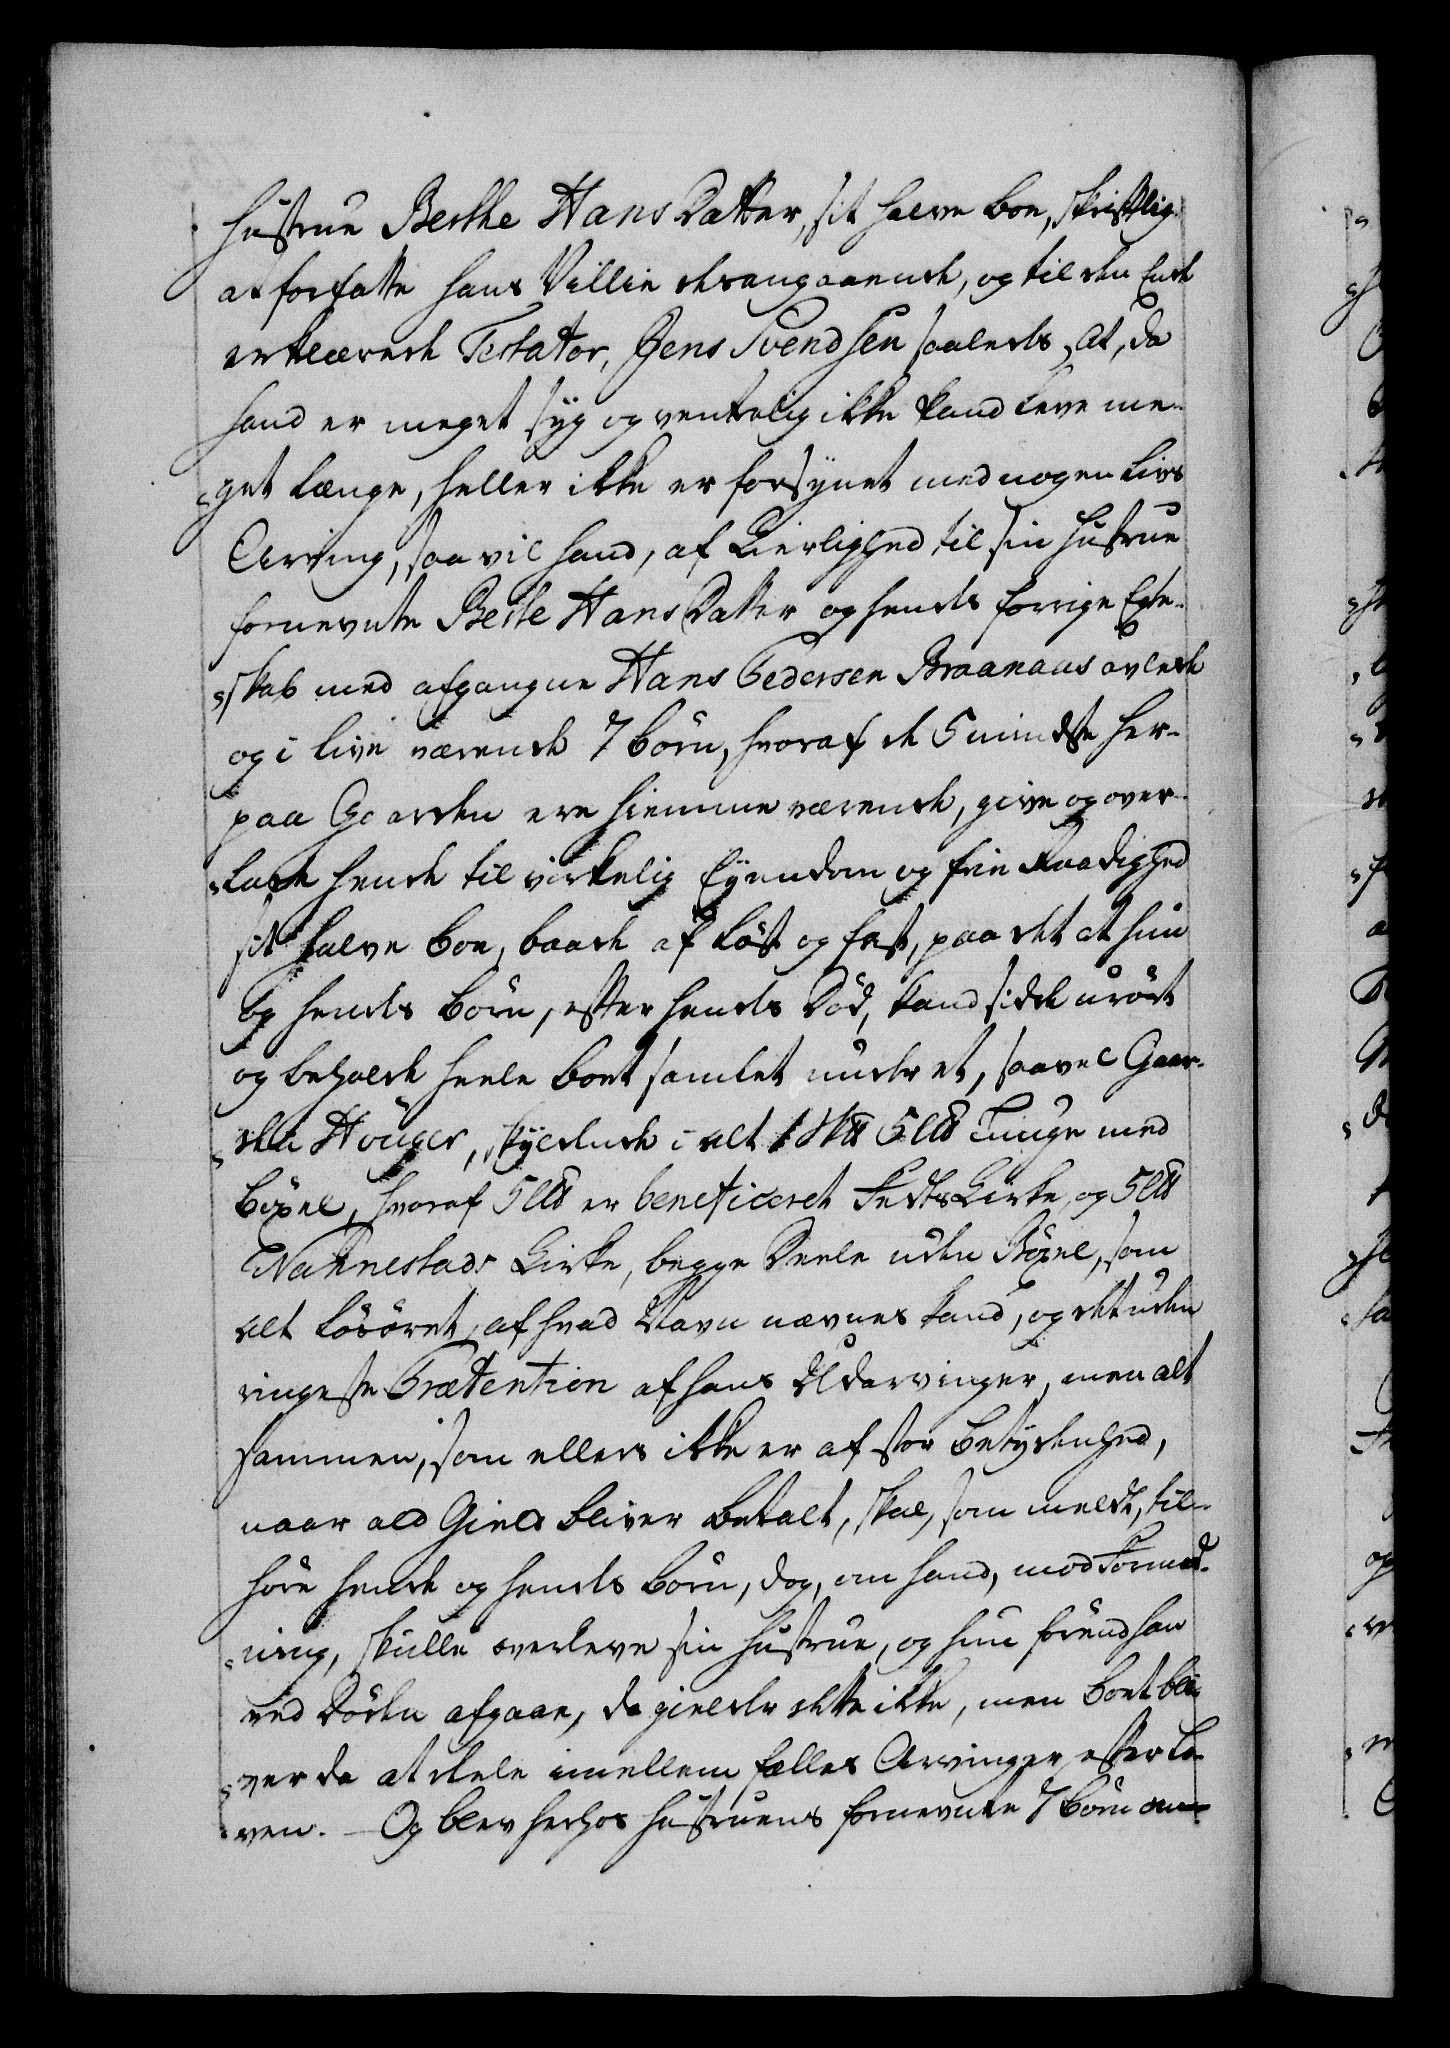 Hustrue Berthe Hans Datter, sit halve Boe, skriftlig
at forfatte hans Villie desangaaende, og til den Ende
erklærede Testator, Jens Svendsen saaledes, At, da
hand er meget syg og ventelig ikke kand leve me-
get længe, heller ikke er forsynet med nogen Livs
Arving, saa vil hand, af Kierlighed til sin Hustrue
fornevnte Berte Hans Datter og hendes forrige Egte-
skab med afgangne Hans Pedersen Braanaas avlede
og i live værende 7 Børn, hvoraf de 5 mindste her-
paa Gaarden ere hiemmeværende, give og over-
lade hende til virkelig Eyendom og frie Raadighed
sit halve Boe, baade af løst og fast, paa det at hun
og hendes Børn, efter hendes Død, kand sidde urørt
og beholde heele Boet samlet under et, saavel Gaar-
den Houger, skyldende i alt 1 Skp 5 Lpd Tunge med
Bøxel, hvoraf 5 Lpd er beneficeret Feds Kirke, og 5 Lpd
Nannestads Kirke, begge Deele uden Bøxel, som
alt Løsøret, af hvad Navn nævnes kand, og det uden
ringeste Prætention af hans Udarvinger, men alt
sammen, som ellers ikke er af stor Betydenhed,
naar ald Gield bliver betalt, skal, som meldt, til-
høre hende og hendes Børn, dog, om hand, mod Formod-
ning, skulle overleve sin Hustrue, og hun forend han
ved Døden afgaae, da gielder dette ikke, men Boet bli-
ver da at dele imellem fælles Arvinger efter Lo-
ven. – Og blev herhos Hustruens fornevnte 7 Børn om-